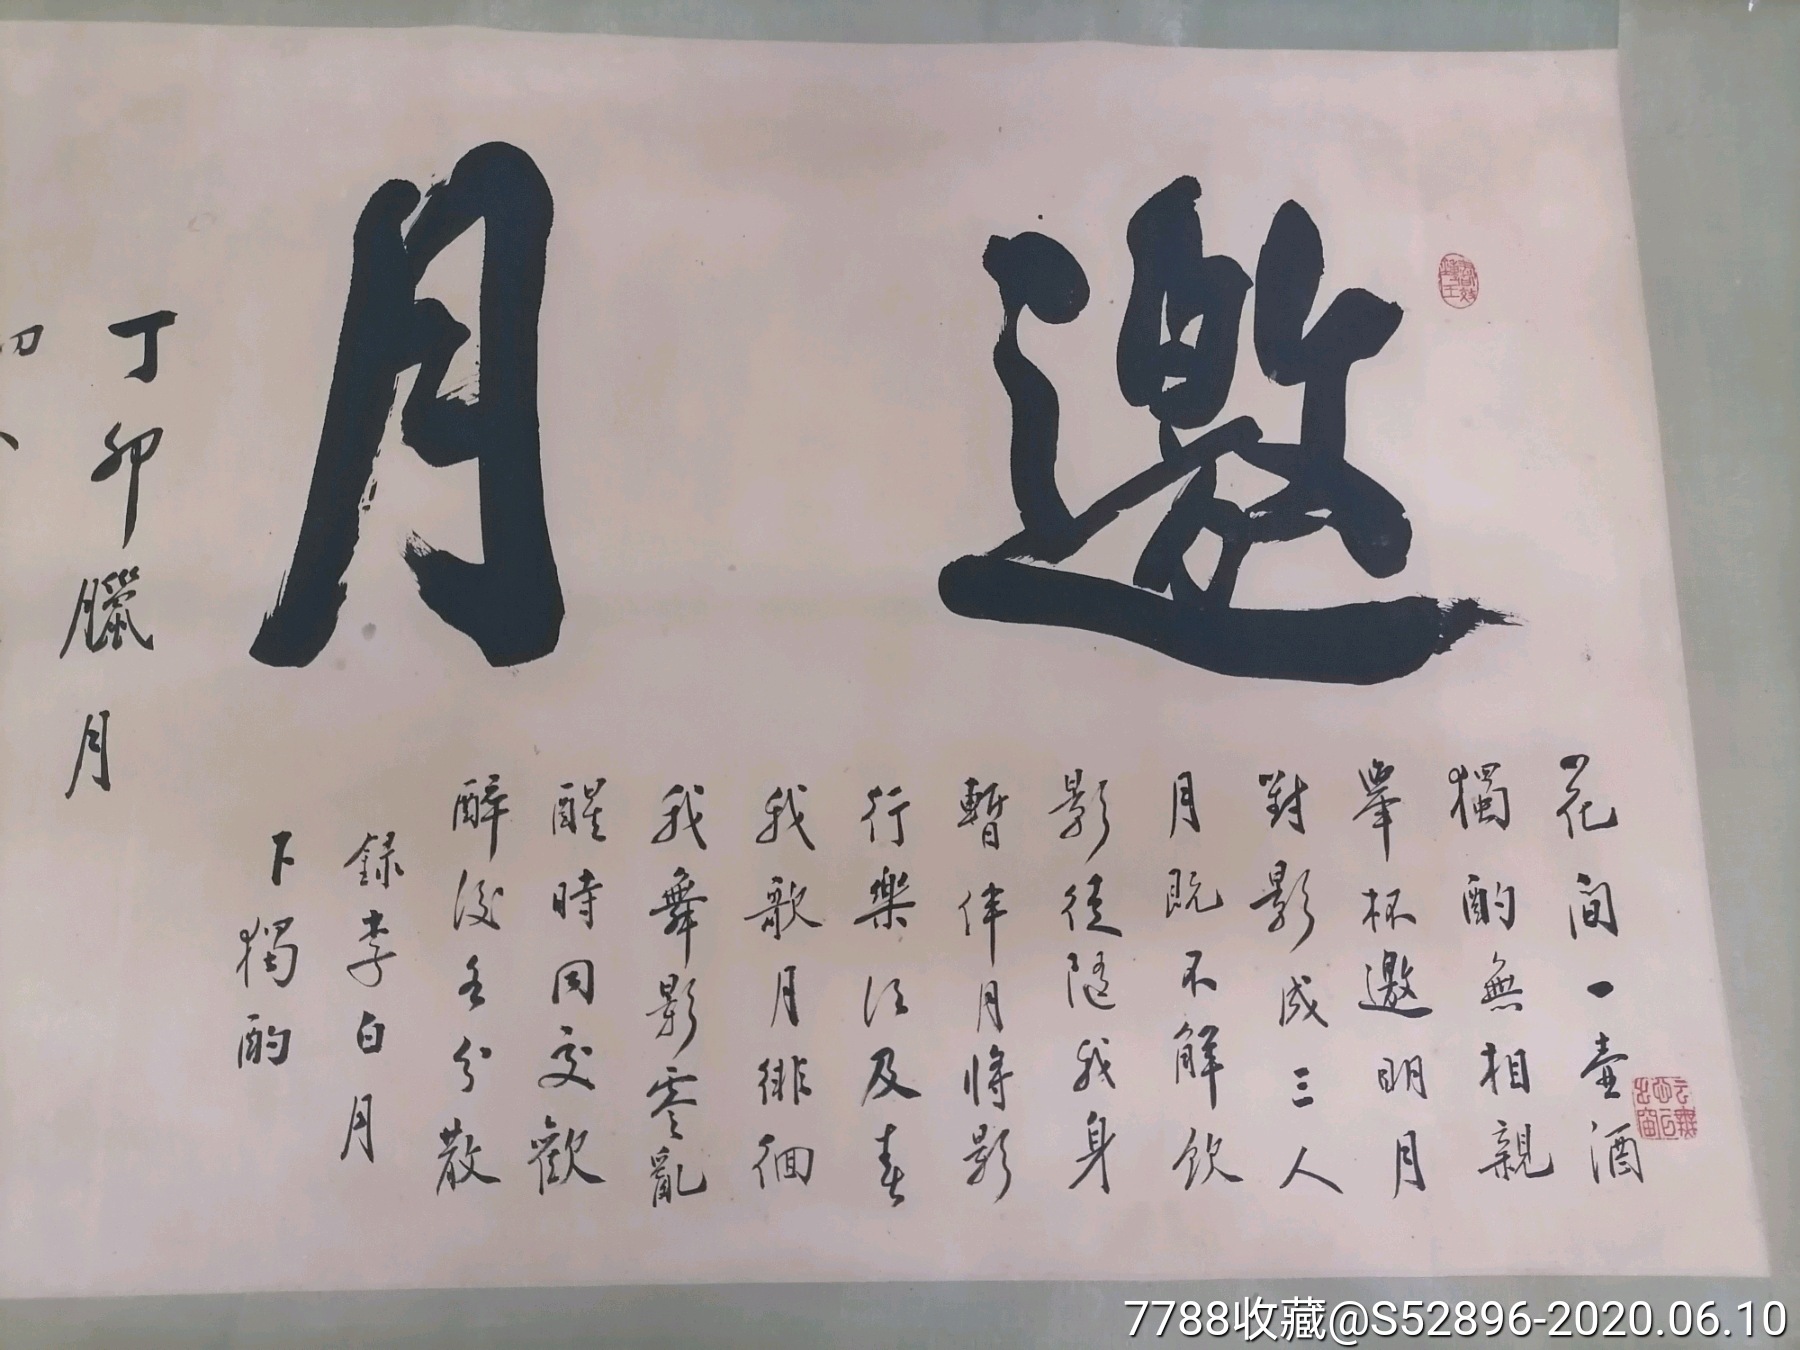 邀月
花間一壺酒
獨酌無相親
舉杯邀明月
對影成三人
月既不解飲
影徒隨我身
暫伴月將影
行樂須及春
我歌月徘徊
我舞影零亂
醒時同交歡
醉後各分散
錄李白月
下獨酌
丁卯臘月
7788收藏@S52896-2020.06.10